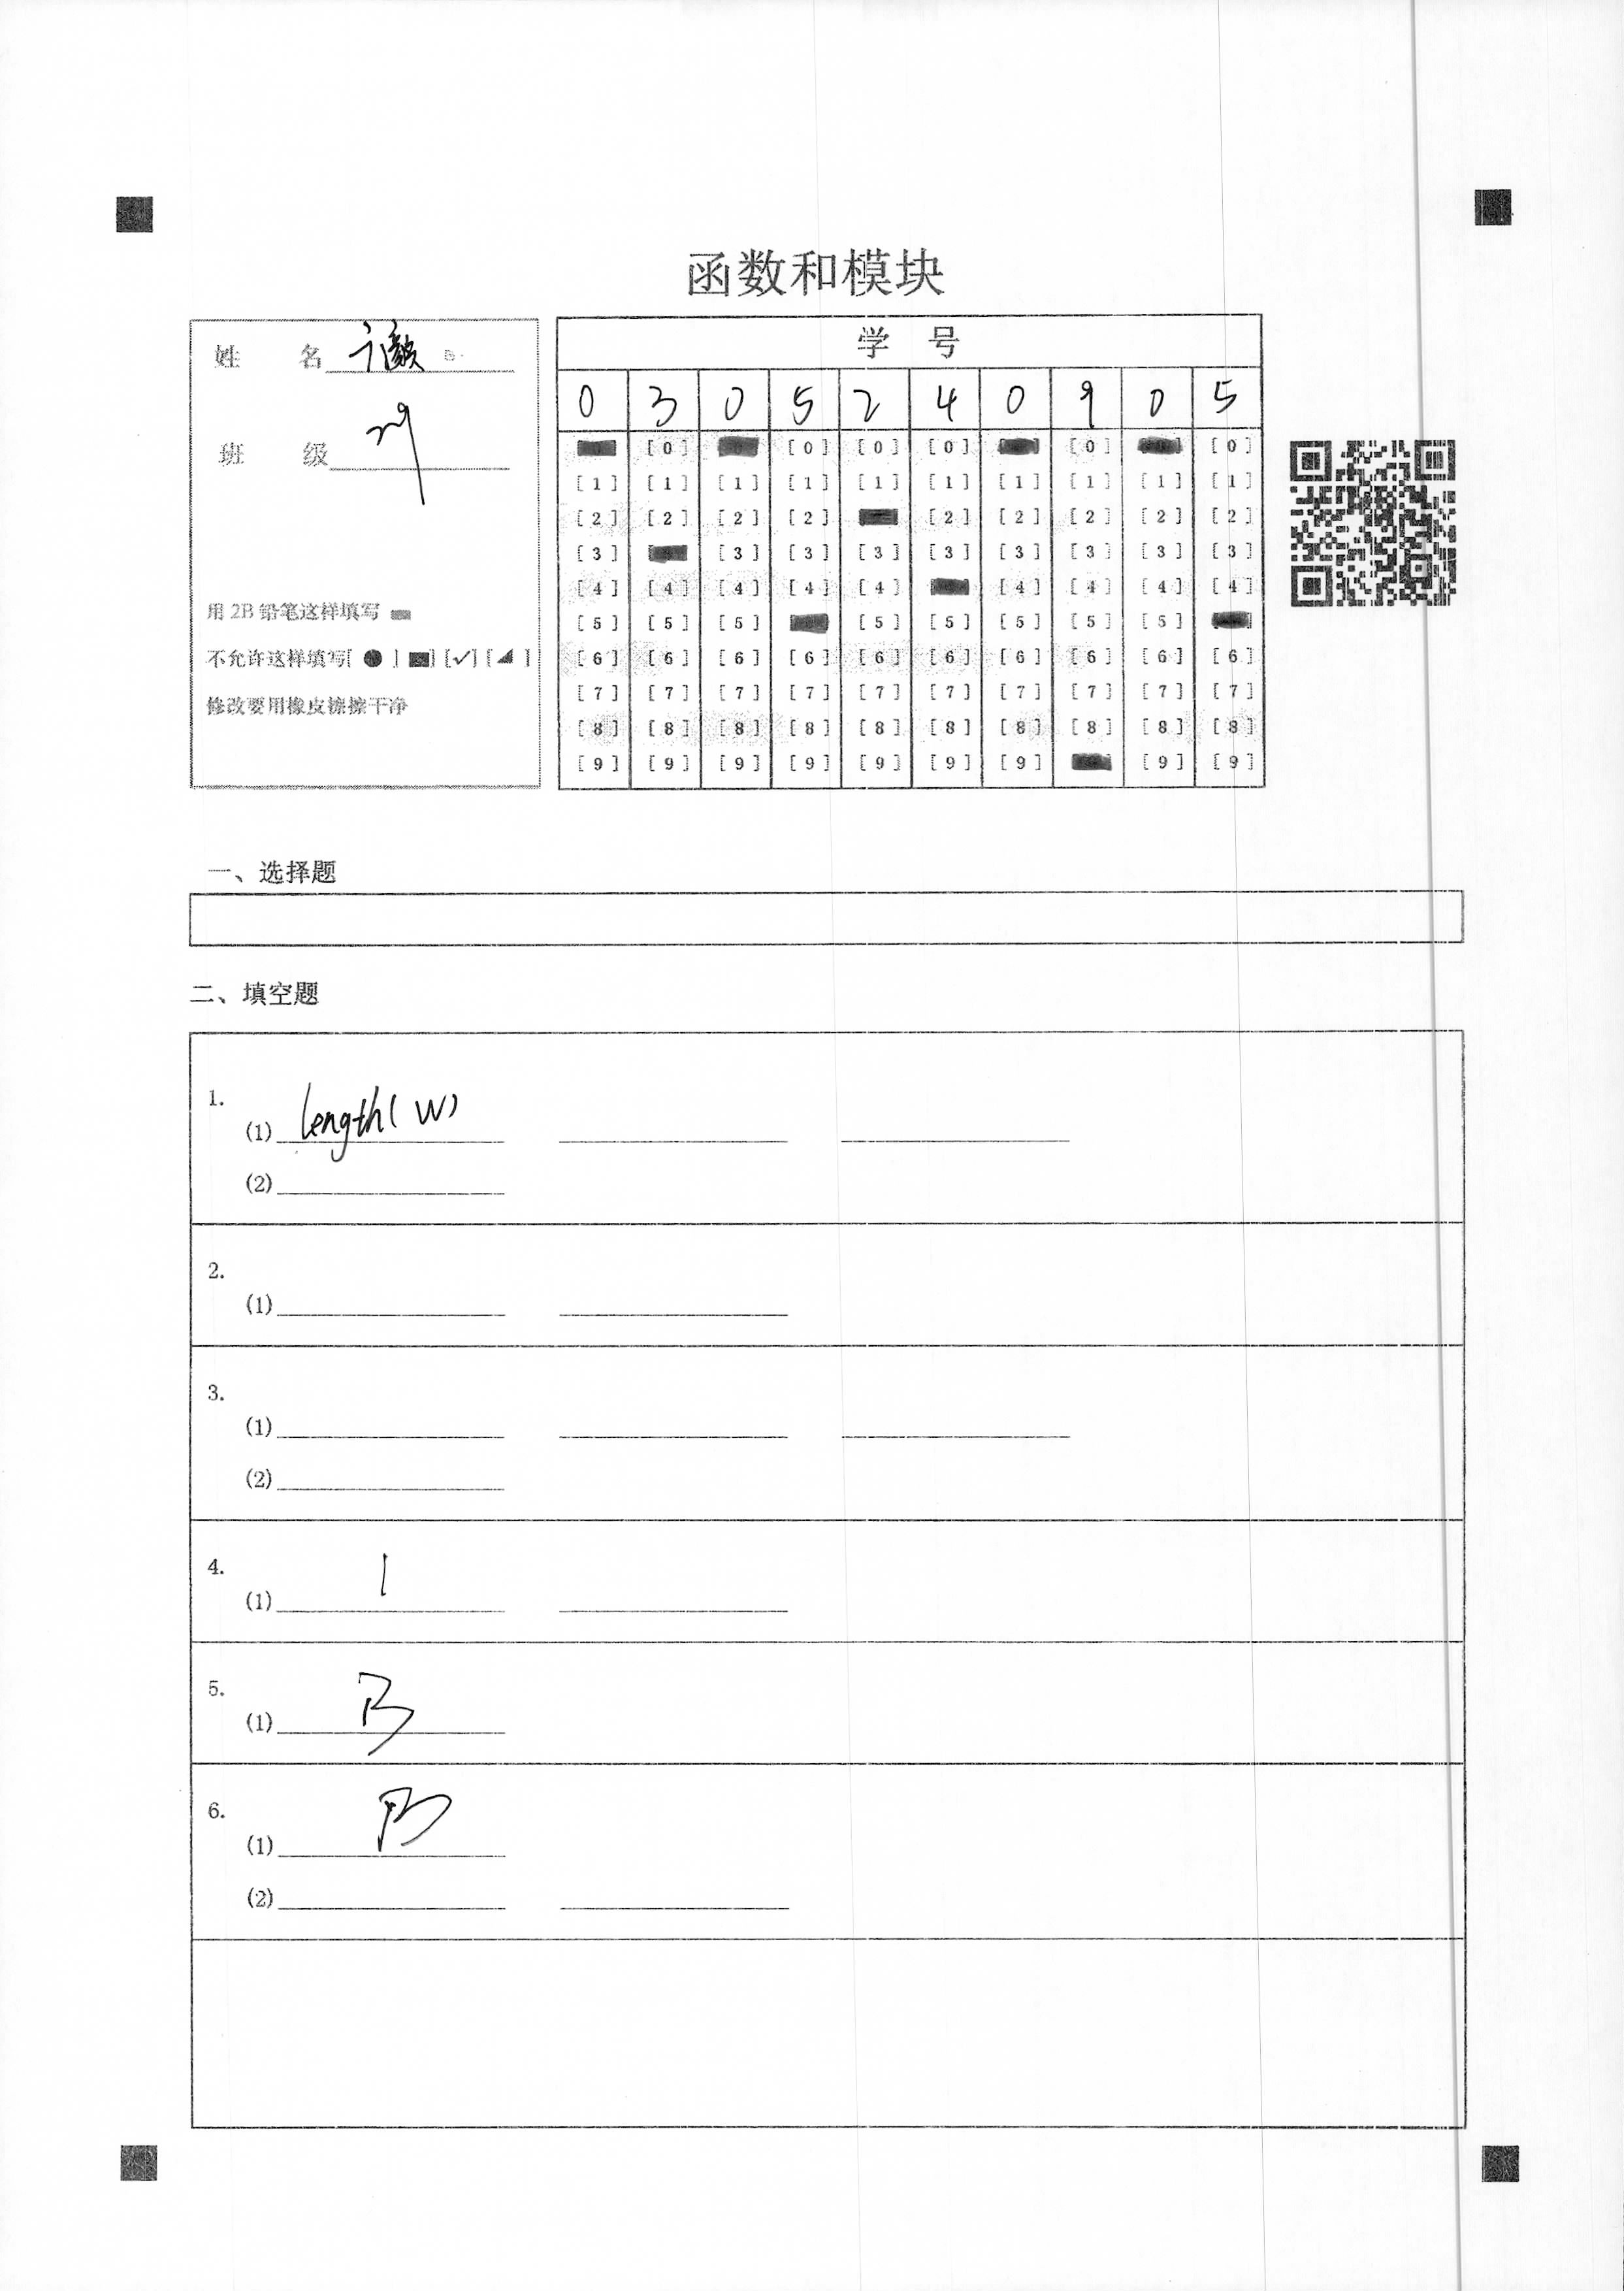 函数和模块
姓 名
班 级
用 2B 铅笔这样填写
不允许这样填写[ ● ] [■] [✓] [◢ ]
修改要用橡皮擦擦干净
学 号
0 3 0 5 2 4 0 9 0 5
[0] [0] [0] [0] [0] [0]
[1] [1] [1] [1] [1] [1] [1] [1] [1] [1]
[2] [2] [2] [2] [2] [2] [2] [2] [2]
[3] [3] [3] [3] [3] [3] [3] [3] [3]
[4] [4] [4] [4] [4] [4] [4] [4] [4]
[5] [5] [5] [5] [5] [5] [5] [5]
[6] [6] [6] [6] [6] [6] [6] [6] [6] [6]
[7] [7] [7] [7] [7] [7] [7] [7] [7] [7]
[8] [8] [8] [8] [8] [8] [8] [8] [8] [8]
[9] [9] [9] [9] [9] [9] [9] [9] [9]
一、选择题
二、填空题
1.
(1) length( W)
(2)
2.
(1)
3.
(1)
(2)
4.
(1) 1
5.
(1) B
6.
(1) B
(2)